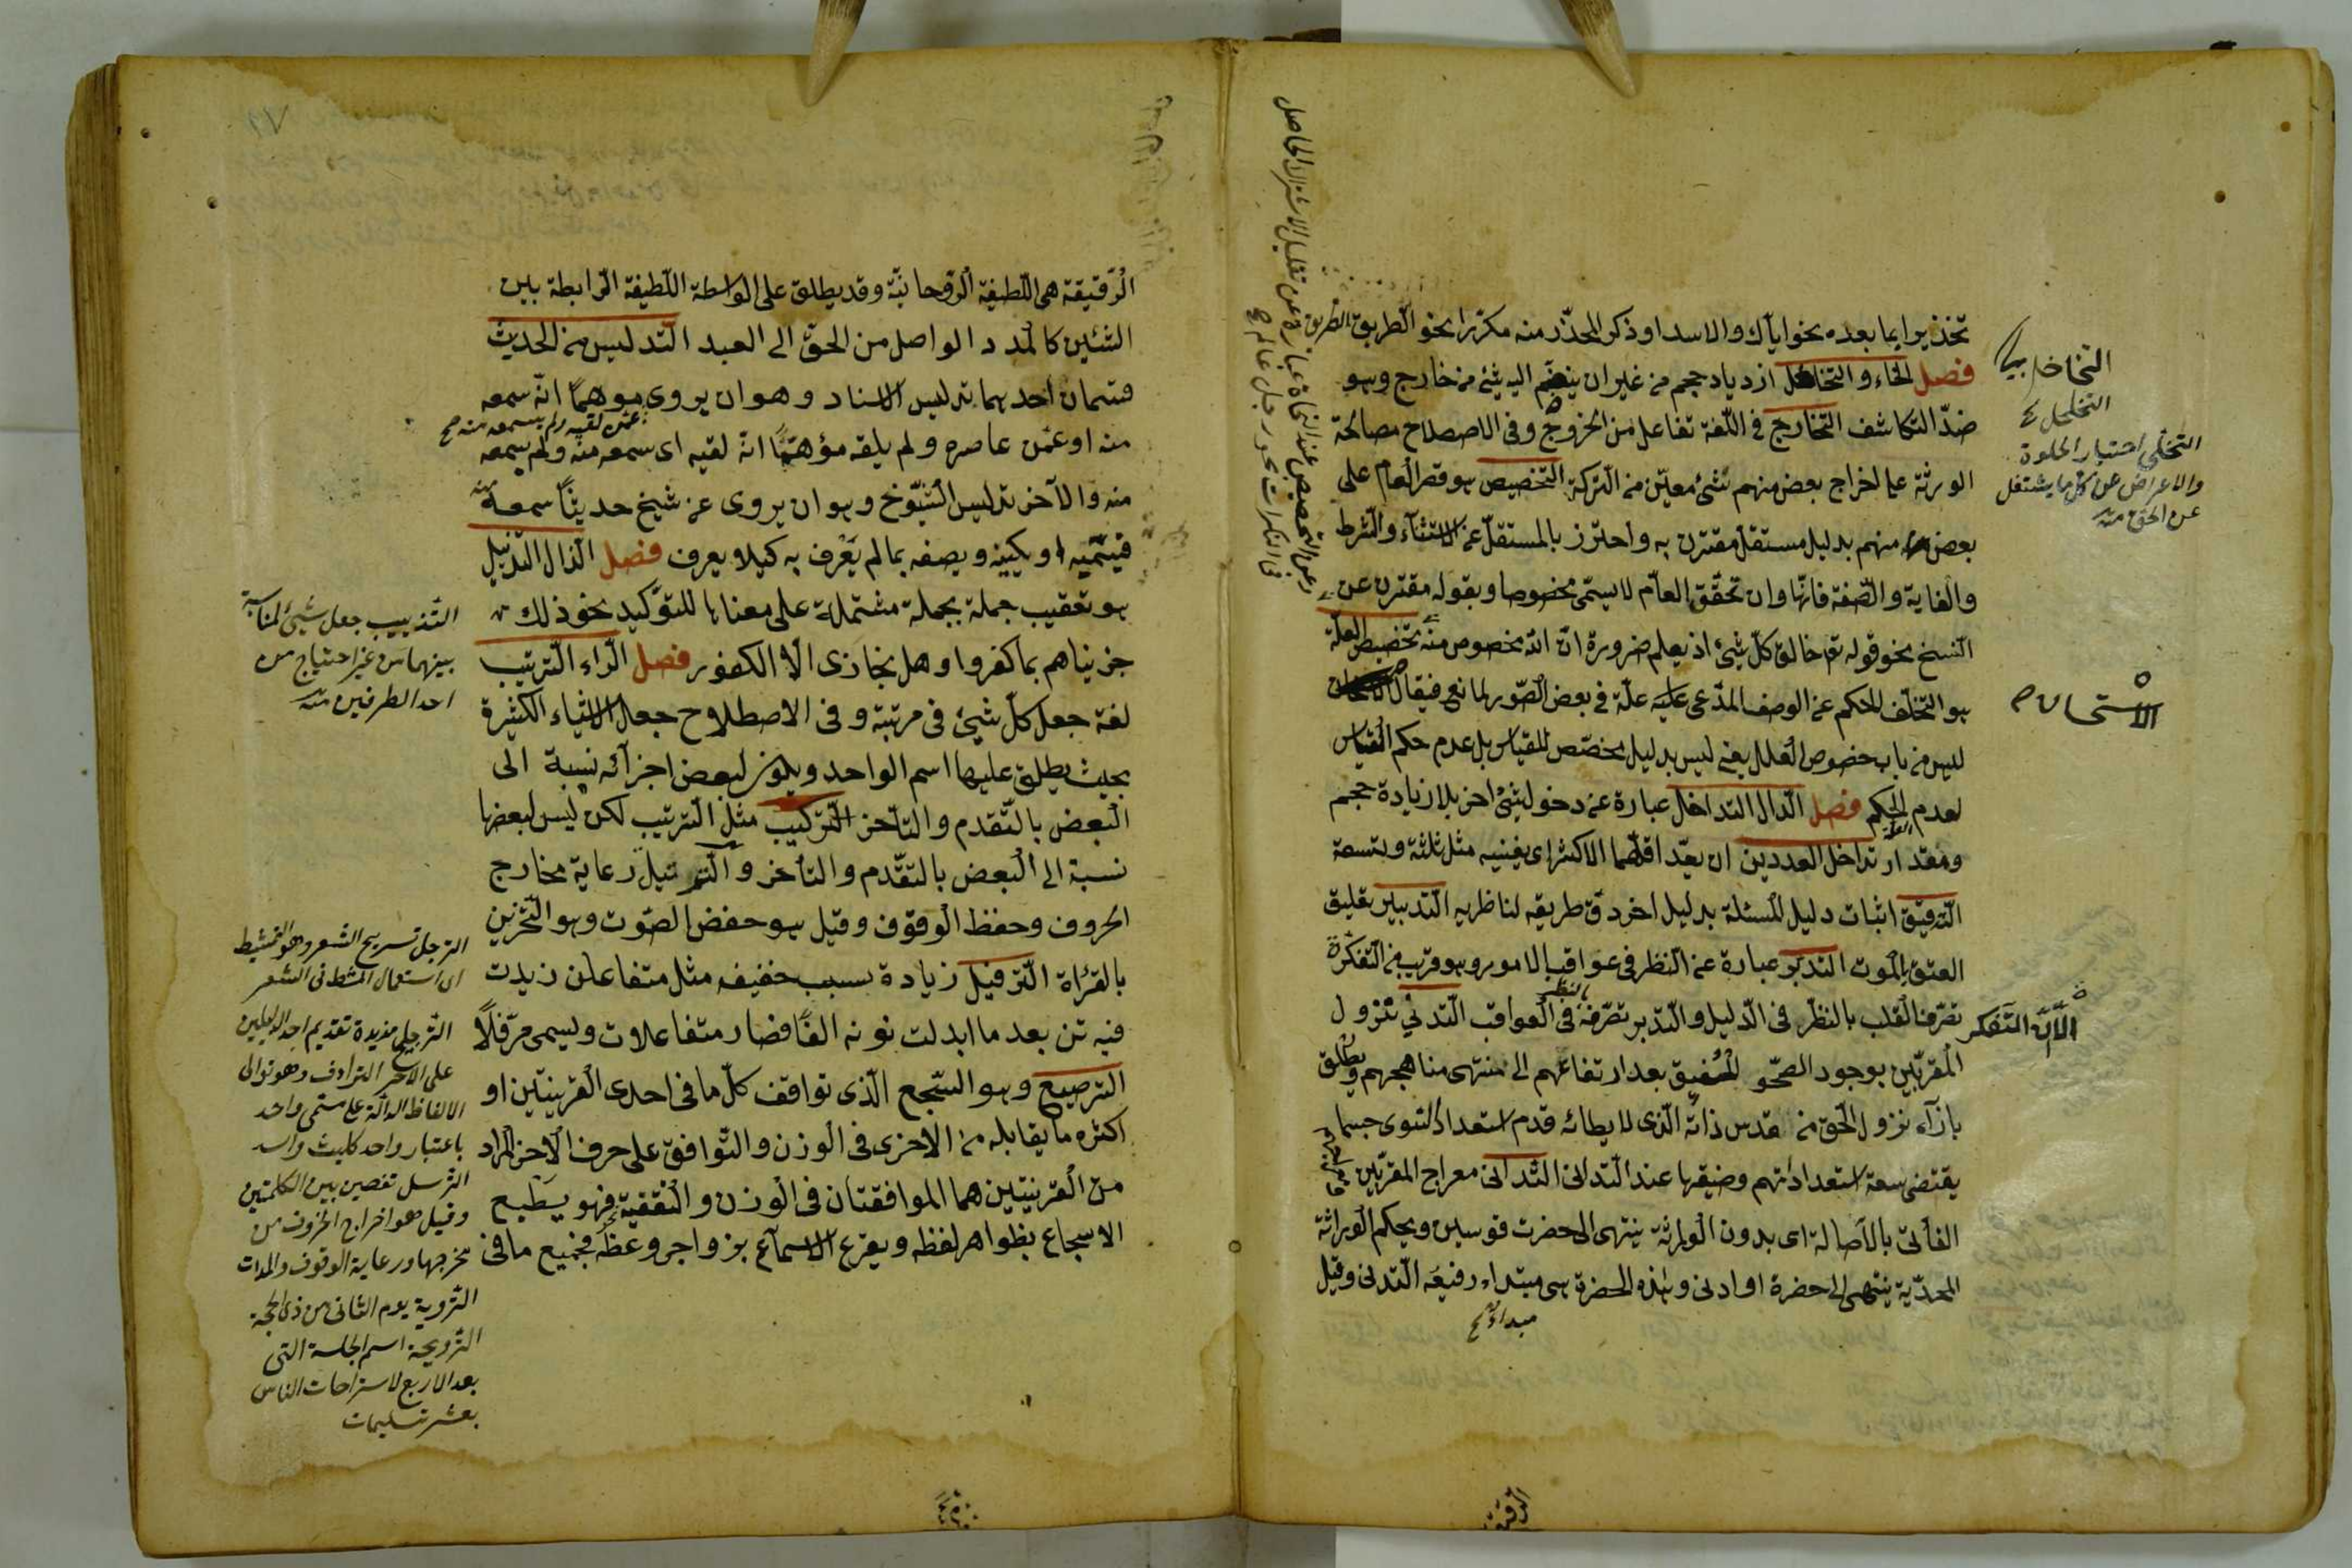 تحذيرا بما بعده نحو اياك والاسد او ذكر المحذّر منه مكرّرا نحو الطّريق الطريق
فصل الخاء والتخلخل ازدياد حجم من غير ان ينضم اليه شئ من خارج وهو
ضدّ التكاشف التخارج فى اللّغة تفاعل من الخروج وفى الاصطلاح مصالحة
الورثة على اخراج بعض منهم بشئ معيّن من التركة التخصيص هو قصر العام على
بعض منهم بدليل مستقل مقترن به واحترز بالمستقلّ عن الاستثناء والشرط
والغاية والصّفة فانّها وان تحقّق العامّ لا يسمّى مخصوصا وبقوله مقترن عن
النّسخ نحو قوله تع خالق كلّ شئ اذ يعلم ضرورة انّ الله مخصوص منه تخصيص العلّة
هو التّخلّف للحكم عن الوصف المدّعى عليه علّة فى بعض الصّور لمانع فيقال
ليس من باب خصوص العلل يعنى ليس بدليل مخصّص للقياس بل عدم حكم القياس
لعدم الحكم فصل الدّال التداخل عبارة عن دخول شئ اخر بلا زيادة حجم
ومقدار تداخل العددين ان يعدّ اقلّهما الاكثر اى يفنيه مثل ثلثة وتسعة
التّدقيق اثبات دليل المسئلة بدليل اخر دق طريقه لناظريه التّدبير تعليق
العتق بالموت التدبّر عبارة عن النّظر فى عواقب الامور وهو قريب من التّفكّر
تصرّف القلب بالنظر فى الدّليل والتّدبر تصرّفه فى العواقب التّدلّى نزول
المقرّبين بوجود الصّحو المفيق بعد ارتفاعهم الى منتهى مناهجهم ويطلق
بازآء نزول الحق من قدس ذاته الّذى لا يطائه قدم استعداد السّوى حسبما
يقتضى سعة استعداداتهم وضيقها عند التدانى التّدانى معراج المقرّبين
بالاصالة اى بدون الوراثة ينتهى الى حضرت قوسين وبحكم الوراثة
المحمّديّة ينتهى الى حضرة او ادنى وهذه الحضرة هى مبتداء رفيعه التّدلى وقيل
مبداء
التخلخل
التخلّى اختيار الخلوة
والاعراض عن كل ما يشتغل
عن الحق منه
الاستحسان
الّا انّ التّفكر
وعن التخصيص عند النحاة عبارة عن تقليل الاشتراك الحاصل
فى النكرات نحو رجل عالم
الرّقيقة
الرّقيقة هى اللّطيفة الرّوحانيّة وقد يطلق على الواسطة اللّطيفة الرّابطة بين
الشّئين كالمدد الواصل من الحقّ الى العبد التّدليس من الحديث
قسمان احدهما تدليس الاسناد وهو ان يروى موهمًا انّه سمعه
عمّن لقيه ولم يسمعه منه
منه او عمّن عاصره ولم يلقه موهمًا انّه لقيه اى سمعه منه ولم يسمعه
منه والآخر تدليس الشّيّوخ وهو ان يروى عن شيخ حديثًا سمعه منه
فيسمّيه او يكنيه ويصفه بما لم يَعْرف به كيلا يعرف فصل الذال التّذييل
هو تعقيب جملة بجملة مشتملة على معناها للتّوكيد نحو ذلك
جزيناهم بما كفروا وهل نجازى الّا الكفور فصل الرّاء التّرتيب
لغة جعل كلّ شئ فى مرتبة وفى الاصطلاح جعل الاشياء الكثيرة
بحيث يطلق عليها اسم الواحد ويكون لبعض اجزآئه نسبة الى
البعض بالتّقدم والتأخر التّركيب مثل التّرتيب لكن ليس لبعضها
نسبة الى البعض بالتقدّم والتأخر والتّرتيل رعاية مخارج
الحروف وحفظ الوقوف وقيل هو خفض الصّوت وهو التّحزين
بالقرأة التّرفيل زيادة سبب خفيف مثل متفاعلن زيدت
فيه تن بعد ما ابدلت نونه الفًا فصار متفاعلاتن ويسمى مرفّلًا
التّرصيع وهو السّجع الّذى توافق كلّ ما فى احدى القرينتين او
اكثره ما يقابله من الاخرى فى الوزن والتّوافق على حرف الآخر المراد
من القرينتين هما الموافقتان فى الوزن والتّقفية نحو فهو يطبع
الاسجاع بظواهر لفظه ويقرع الاسماع بزواجر وعظه فجميع ما فى
التّذبيب جعل شئ لمناسبة
بينهما من غير احتياج من
احد الطرفين منه
الترجل تسريح الشعر وهو التمشيط
اى استعمال المشط فى الشعر
التّرجيح مزيدة تقديم احد الدليلين
على الآخر الترادف وهو توالى
الالفاظ الدّالّة على مسمّى واحد
باعتبار واحد كليث واسد
وقيل هو اخراج الحروف من
مخرجها ورعاية الوقوف والمدات
التّروية يوم الثانى من ذى الحجة
التّرويحة اسم الجلسة التى
بعد الاربع لاستراحات الناس
بعشر تسليمات